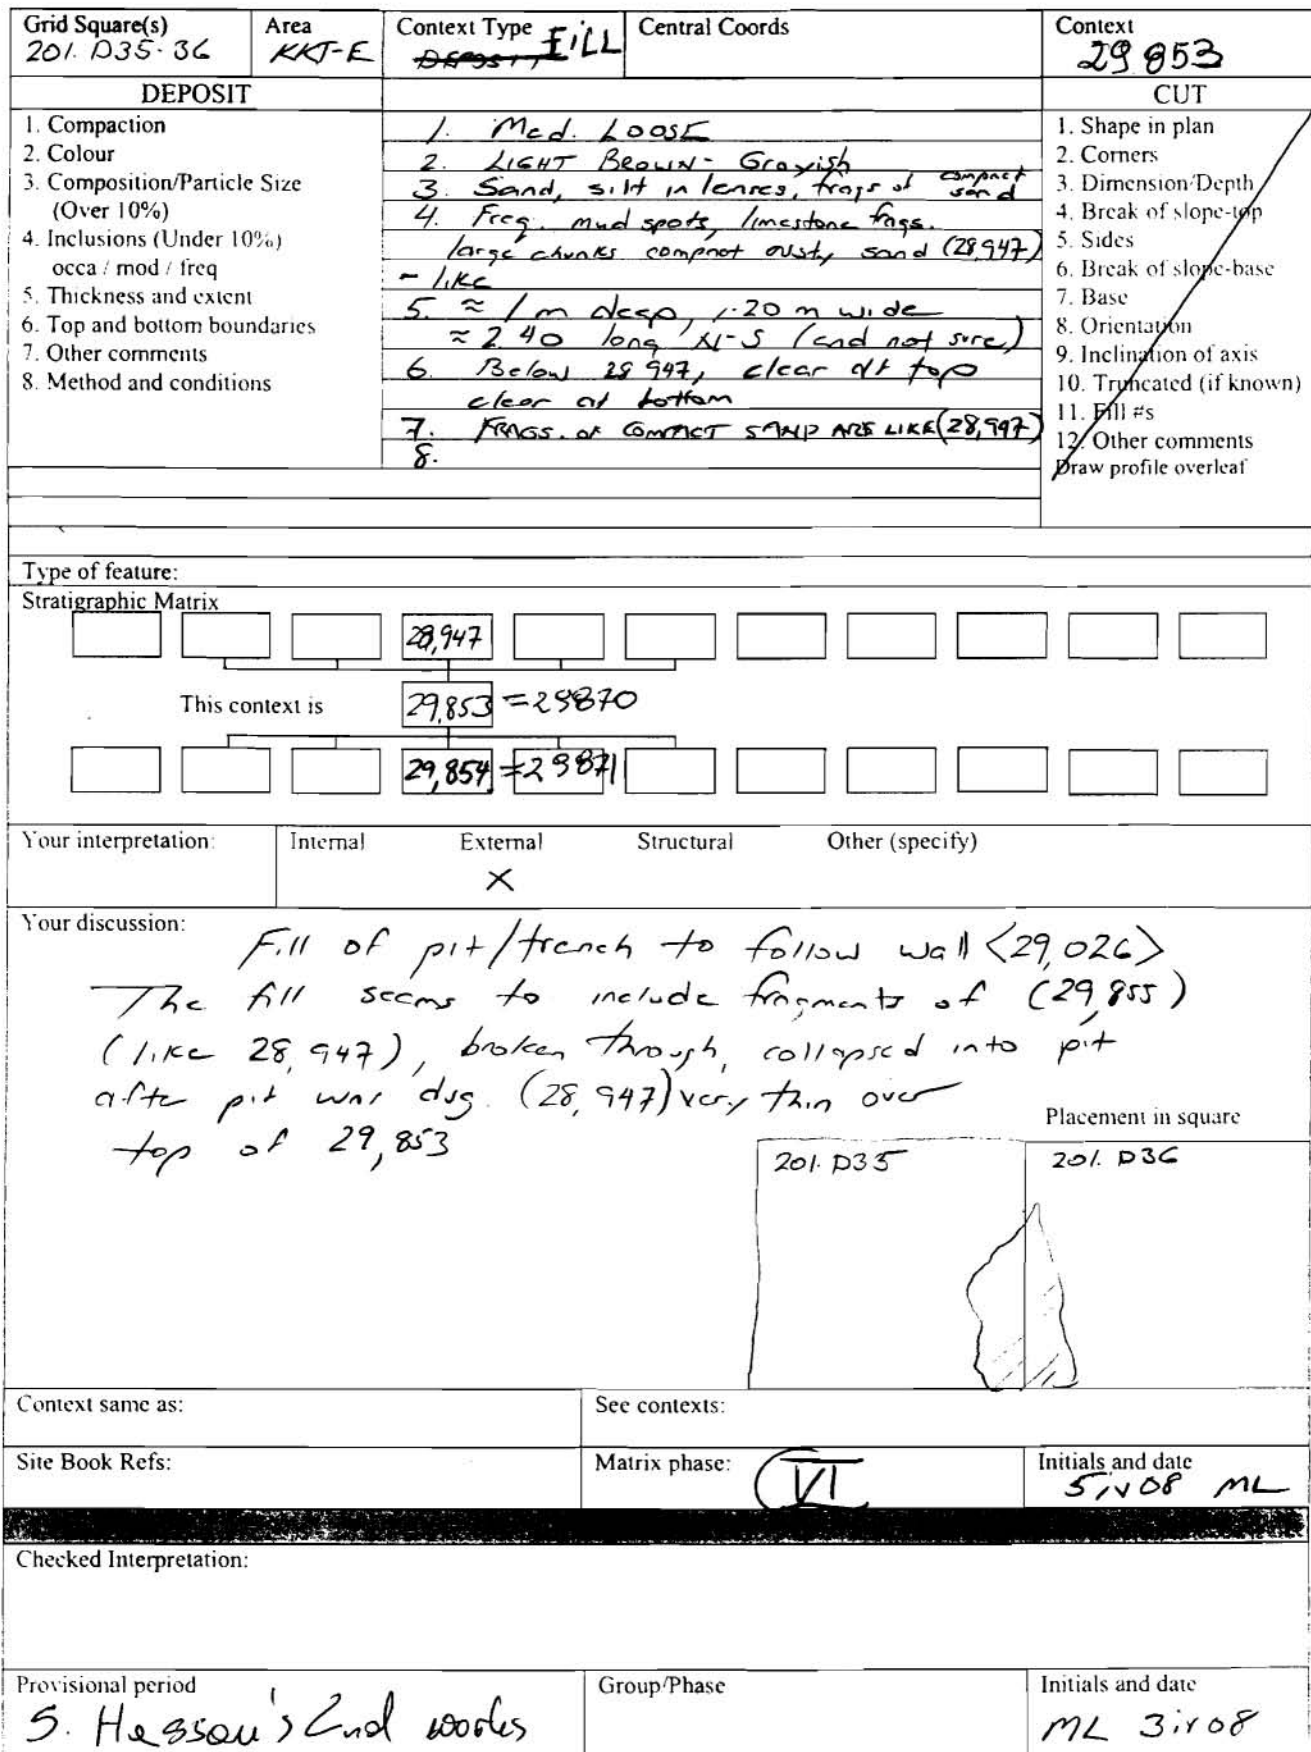 Grid Square(s) Area Context Type Central Coords Context
201. D35-36 KKT-E FILL 29 853
DEPOSIT CUT
1. Compaction
2. Colour
3. Composition/Particle Size
(Over 10%)
4. Inclusions (Under 10%)
occa / mod / freq
5. Thickness and extent
6. Top and bottom boundaries
7. Other comments
8. Method and conditions
1. Med. LOOSE
2. LIGHT BROWN - Grayish
3. Sand, silt in lenses, frags of compact sand
4. Freq. mud spots, limestone frags.
large chunks compact dusty sand (28,947)
- like
5. ≈ 1 m deep, 1.20 m wide
≈ 2.40 long N-S (end not sure)
6. Below 28 947, clear at top
clear at bottom
7. FRAGS. OF COMPACT SAND ARE LIKE (28,947)
8.
1. Shape in plan
2. Corners
3. Dimension/Depth
4. Break of slope-top
5. Sides
6. Break of slope-base
7. Base
8. Orientation
9. Inclination of axis
10. Truncated (if known)
11. Fill #s
12. Other comments
Draw profile overleaf
Type of feature:
Stratigraphic Matrix
28,947
This context is 29,853 = 29870
29,854 = 29871
Your interpretation: Internal External Structural Other (specify)
X
Your discussion:
Fill of pit/trench to follow wall <29,026>
The fill seems to include fragments of (29,855)
(like 28,947), broken through, collapsed into pit
after pit was dug. (28,947) very thin over
top of 29,853
Placement in square
201. D35 201. D36
Context same as: See contexts:
Site Book Refs: Matrix phase: VI Initials and date
5iv08 ML
Checked Interpretation:
Provisional period Group/Phase Initials and date
S. Hassan's 2nd works ML 3iv08